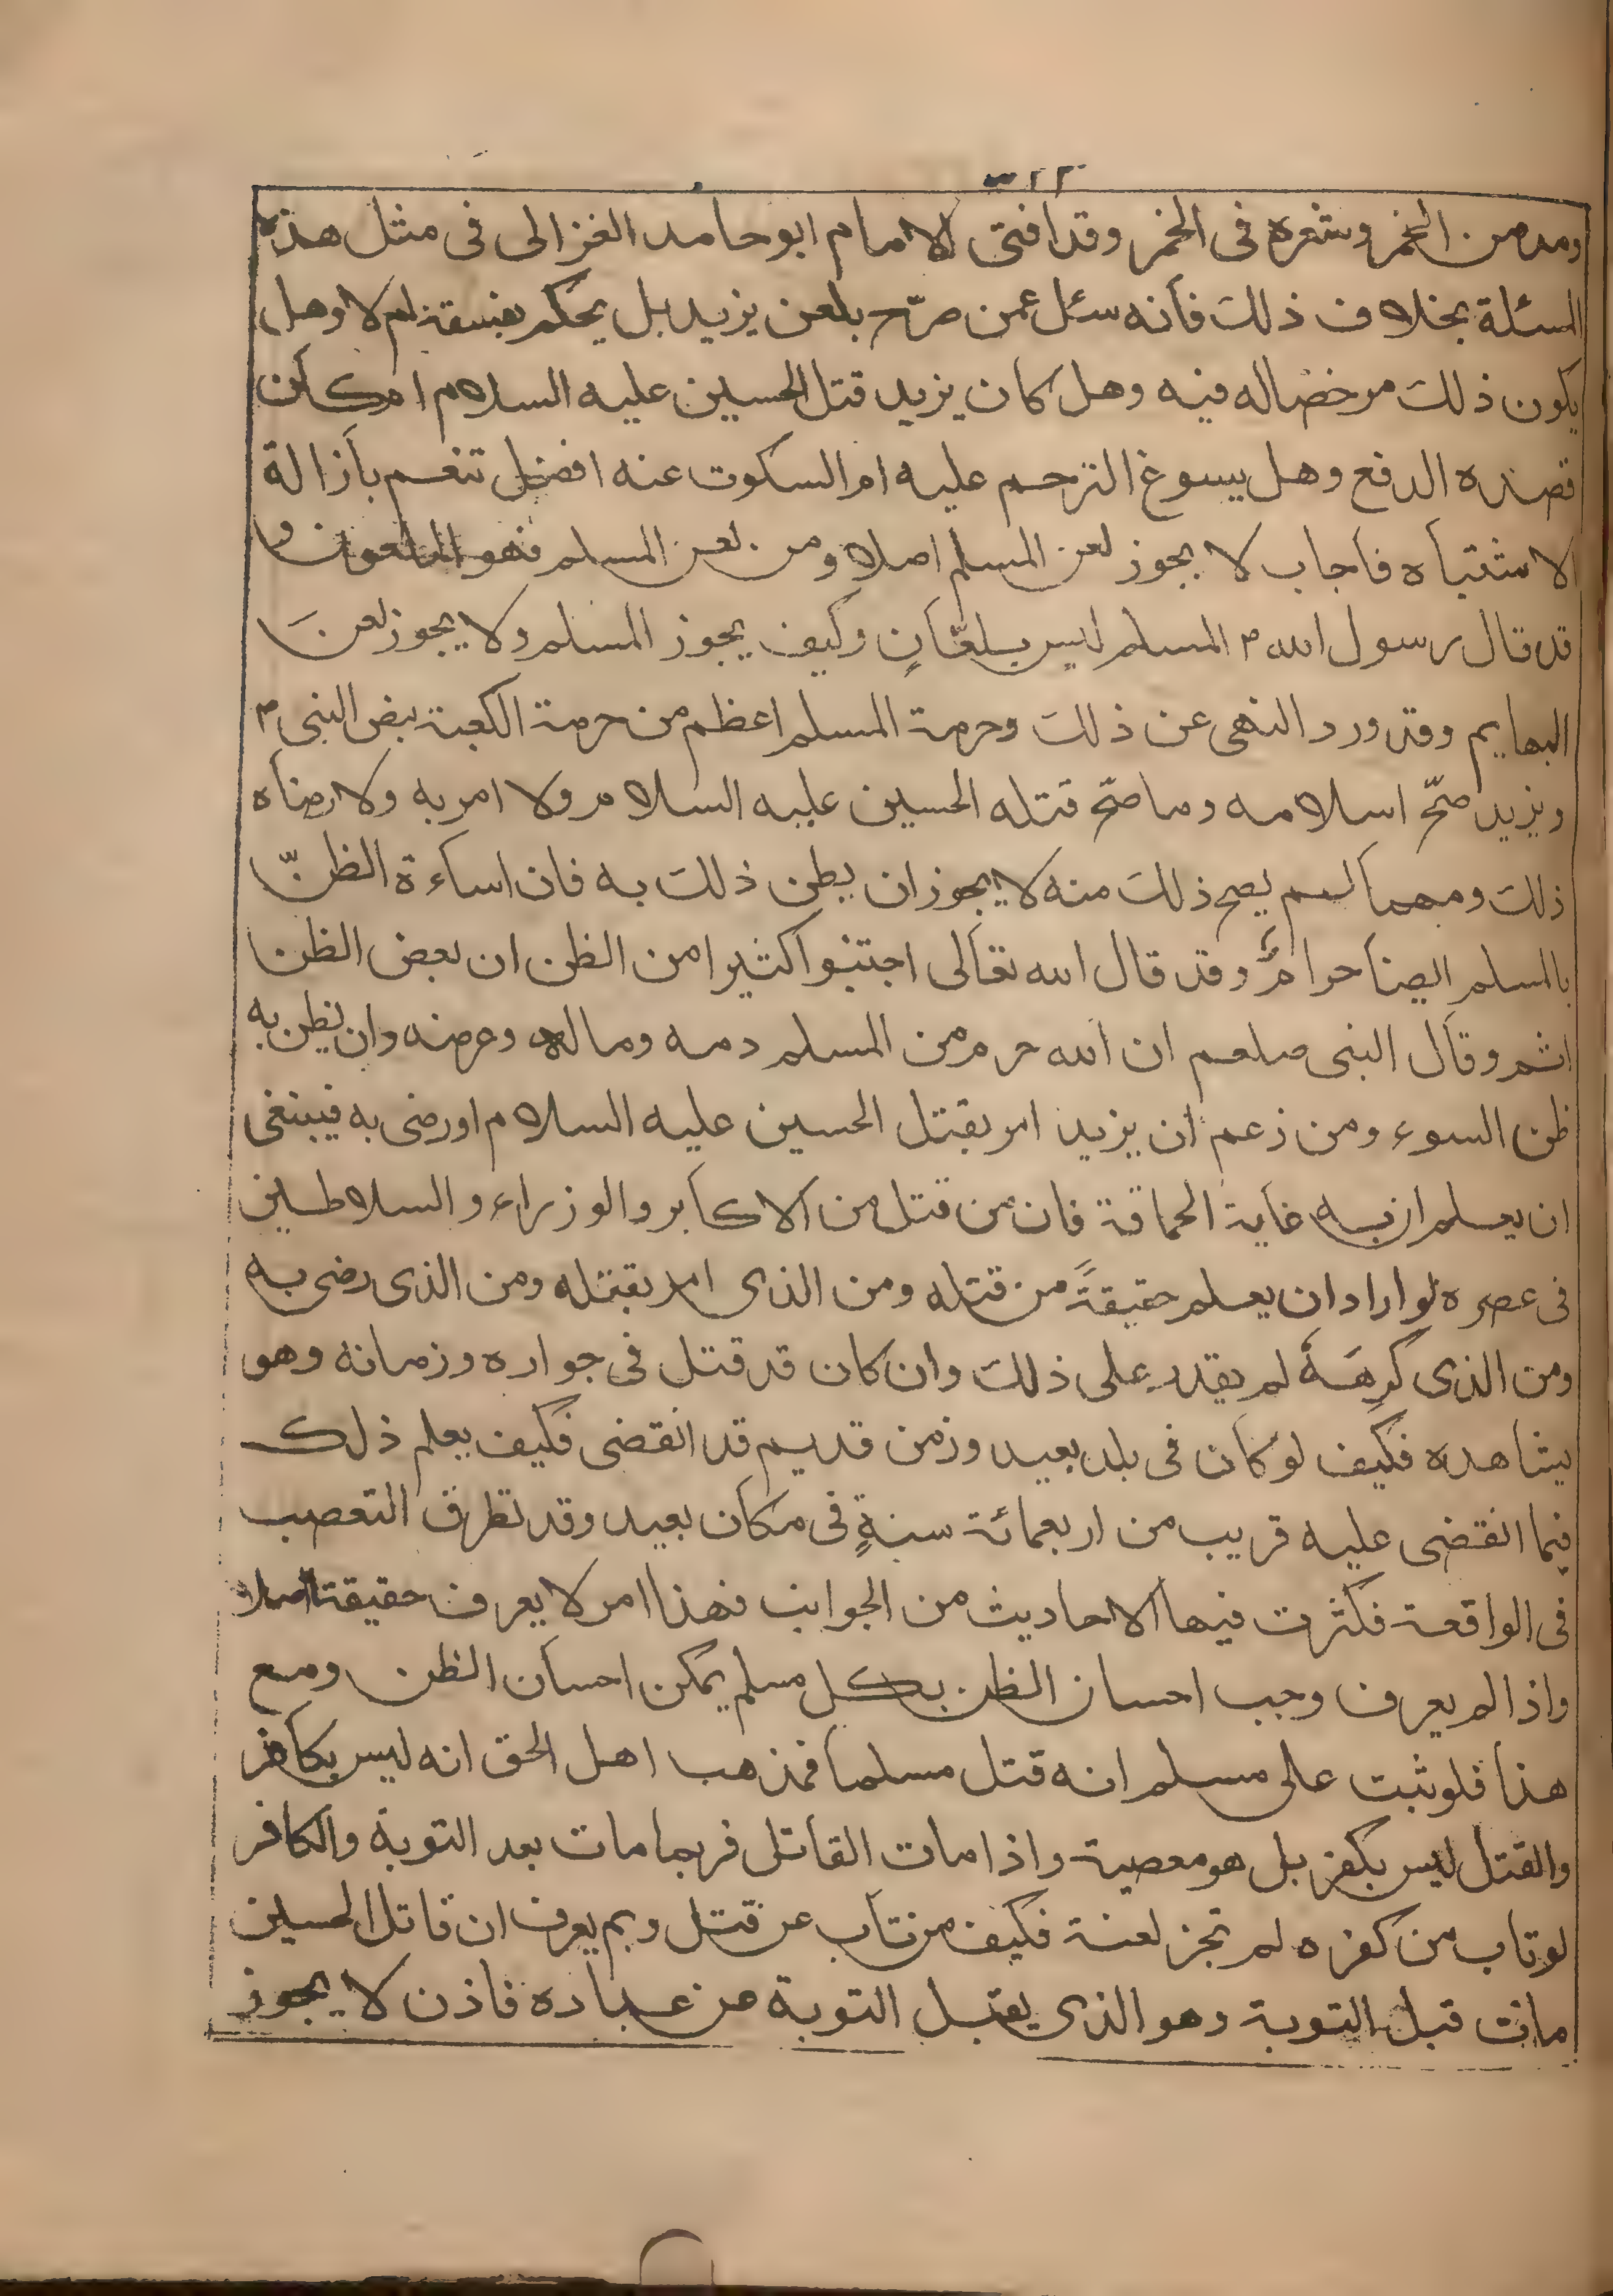 ومدمن الخمر وشعره فى الخمر وقد افتى الامام ابو حامد الغزالى فى مثل هذه
المسئلة بخلاف ذلك فانه سئل عمن صرّح بلعن يزيد بل يحكم بفسقة ام لا وهل
يكون ذلك مرخصا له فيه وهل كان يزيد قتل الحسين عليه السلام ام كان
قصده الدفع وهل يسوغ الترحم عليه ام السكوت عنه افضل تنعم بازالة
الاشتباه فاجاب لا يجوز لعن المسلم اصلا ومن لعن المسلم فهو الملعون و
قد قال رسول الله م المسلم ليس بلعّانٍ وكيف يجوز المسلم ولا يجوز لعن
البهايم وقد ورد النهى عن ذلك وحرمة المسلم اعظم من حرمة الكعبة بنص النبى م
ويزيد صحّ اسلامه وما صحّ قتله الحسين عليه السلام ولا امر به ولا رضاه
ذلك ومهما لم يصح ذلك منه لا يجوز ان يظن ذلك به فان اساءة الظنّ
بالمسلم ايضا حرامٌ وقد قال الله تعالى اجتنبوا كثيرا من الظن ان بعض الظن
اثم وقال النبى صلعم ان الله حرم من المسلم دمه وماله وعرضه وان يظن به
ظن السوء ومن زعم ان يزيد امر بقتل الحسين عليه السلام او رضى به فينبغى
ان يعلم ان به غاية الحماقة فان من قتل من الاكابر والوزراء والسلاطين
فى عصره لو اراد ان يعلم حقيقةً من قتله ومن الذى امر بقتله ومن الذى رضى به
ومن الذى كرهَهُ لم يقدر على ذلك وان كان قد قتل فى جواره وزمانه وهو
يشاهده فكيف لو كان فى بلد بعيد وزمن قديم قد انقضى فكيف يعلم ذلك
فيما انقضى عليه قريب من اربعمائة سنةٍ فى مكان بعيد وقد تطرق التعصب
فى الواقعة فكثرت فيها الاحاديث من الجوانب فهذا امر لا يعرف حقيقتة اصلا
واذا لم يعرف وجب احسان الظن بكل مسلم يمكن احسان الظن ومع
هذا فلو ثبت على مسلم انه قتل مسلما فمذهب اهل الحق انه ليس بكافر
والقتل ليس بكفر بل هو معصية واذا مات القاتل فربما مات بعد التوبة والكافر
لو تاب من كفره لم تجز لعنة فكيف من تاب عن قتل وبم يعرف ان قاتل الحسين
مات قبل التوبة وهو الذى يقبل التوبة عن عباده فاذن لا يجوز